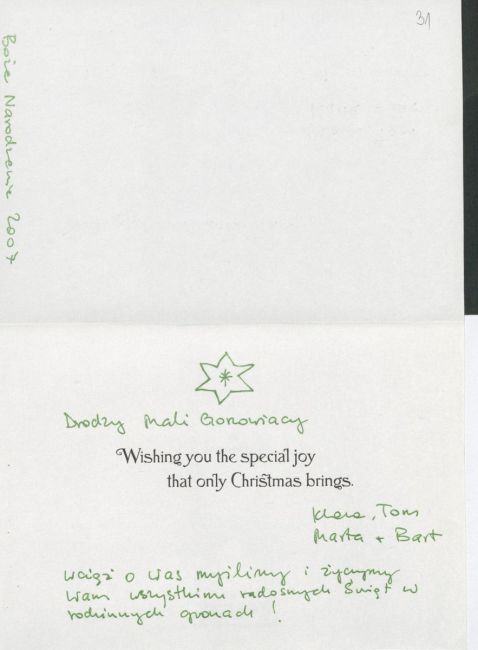 31
Boże Narodzenie 2007
Drodzy Mali Gonowiacy
Wishing you the special joy
that only Christmas brings.
Klara, Tom
Marta + Bart
Wciąż o Was myślimy i życzymy
Wam wszystkim radosnych Świąt w
rodzinnych gronach!